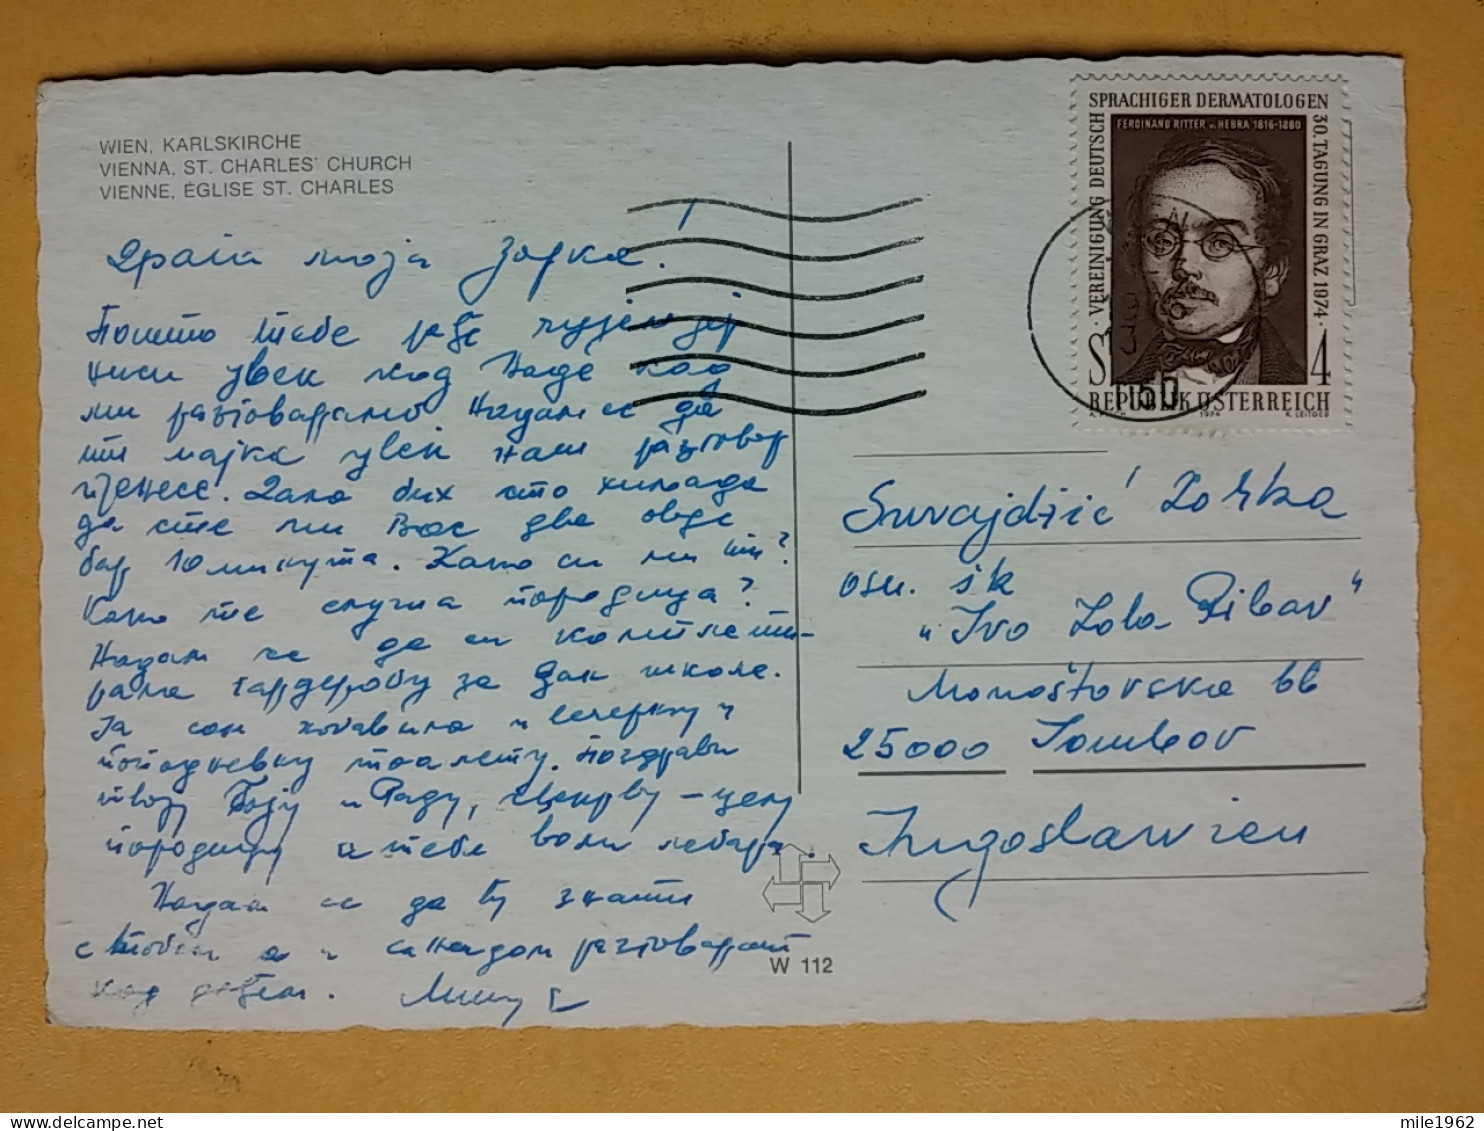 WIEN, KARLSKIRCHE
VIENNA, ST. CHARLES' CHURCH
VIENNE, ÉGLISE ST. CHARLES
Драга моја Зорка!
Пошто тебе
ниси увек код Наде као
ми разговарамо Надам се да
ти мајка увек наш разговор
пренесе. Дала бих сто хиљада
да сте ми Вас две овде
бар 10 минута. Како си ми ти?
Како те служи породица?
Надам се да си комплети-
рала гардеробу за дан школе.
Ја сам набавила и вечерњу и
поподневну тоалету. Поздрави
твоју и Раду, свекрву - целу
породицу а тебе воли
Надам се да ћу знати
с тобом а и са Надом разговарати
код
VEREINIGUNG DEUTSCH
SPRACHIGER DERMATOLOGEN
30. TAGUNG IN GRAZ 1974
FERDINAND RITTER v. HEBRA 1816-1880
S 4
REPUBLIK ÖSTERREICH
1974 K. LEITGEB
1150
Suvajdžić Zorka
osn. šk
"Ivo Lola Ribar"
Monoštorska bb
25000 Sombor
Jugoslawien
W 112
mile1962